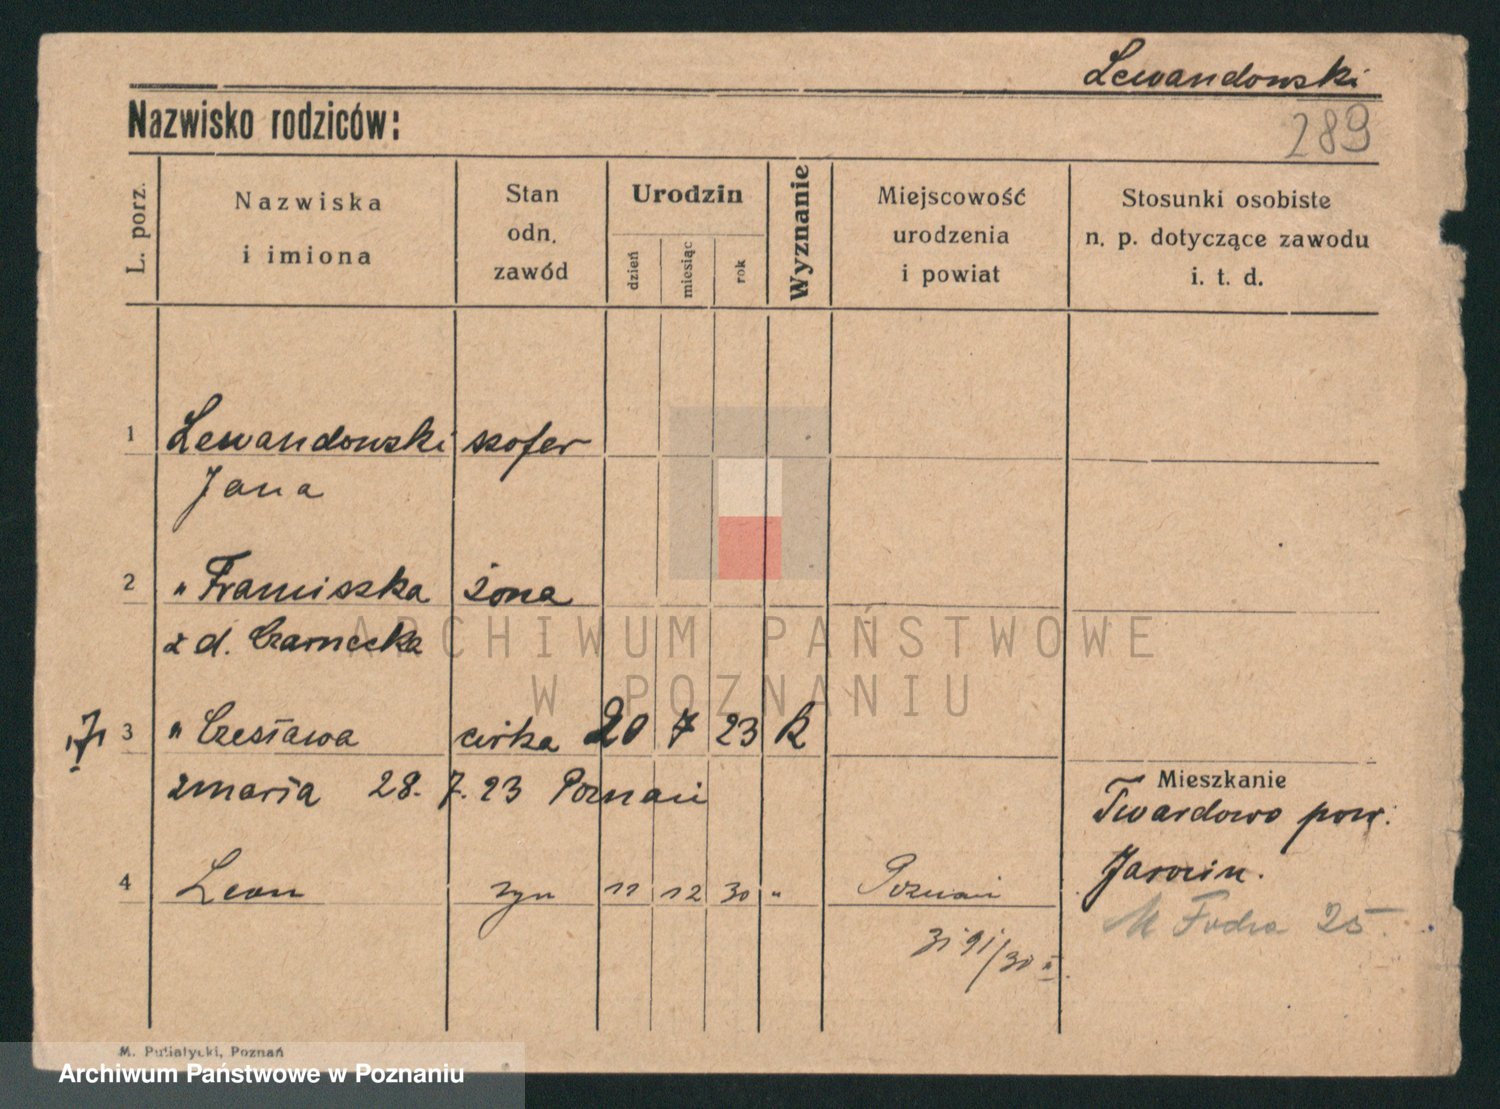 Lewandowski
Nazwisko rodziców:
289
L. porz.
Nazwiska
i imiona
Stan
odn.
zawód
Urodzin
dzień
miesiąc
rok
Wyznanie
Miejscowość
urodzenia
i powiat
Stosunki osobiste
n. p. dotyczące zawodu
i. t. d.
1 Lewandowski szofer
Jana
2 " Franciszka żona
z d. Czarnecka
ARCHIWUM PAŃSTWOWE
W POZNANIU
3 " Czesława córka 20 7 23 k
zmarła 28. 7. 23 Poznań
Mieszkanie
Twardowo pow.
Jarocin.
4 Leon syn 11 12 30 " Poznań
25
M. Putiatycki, Poznań
Archiwum Państwowe w Poznaniu